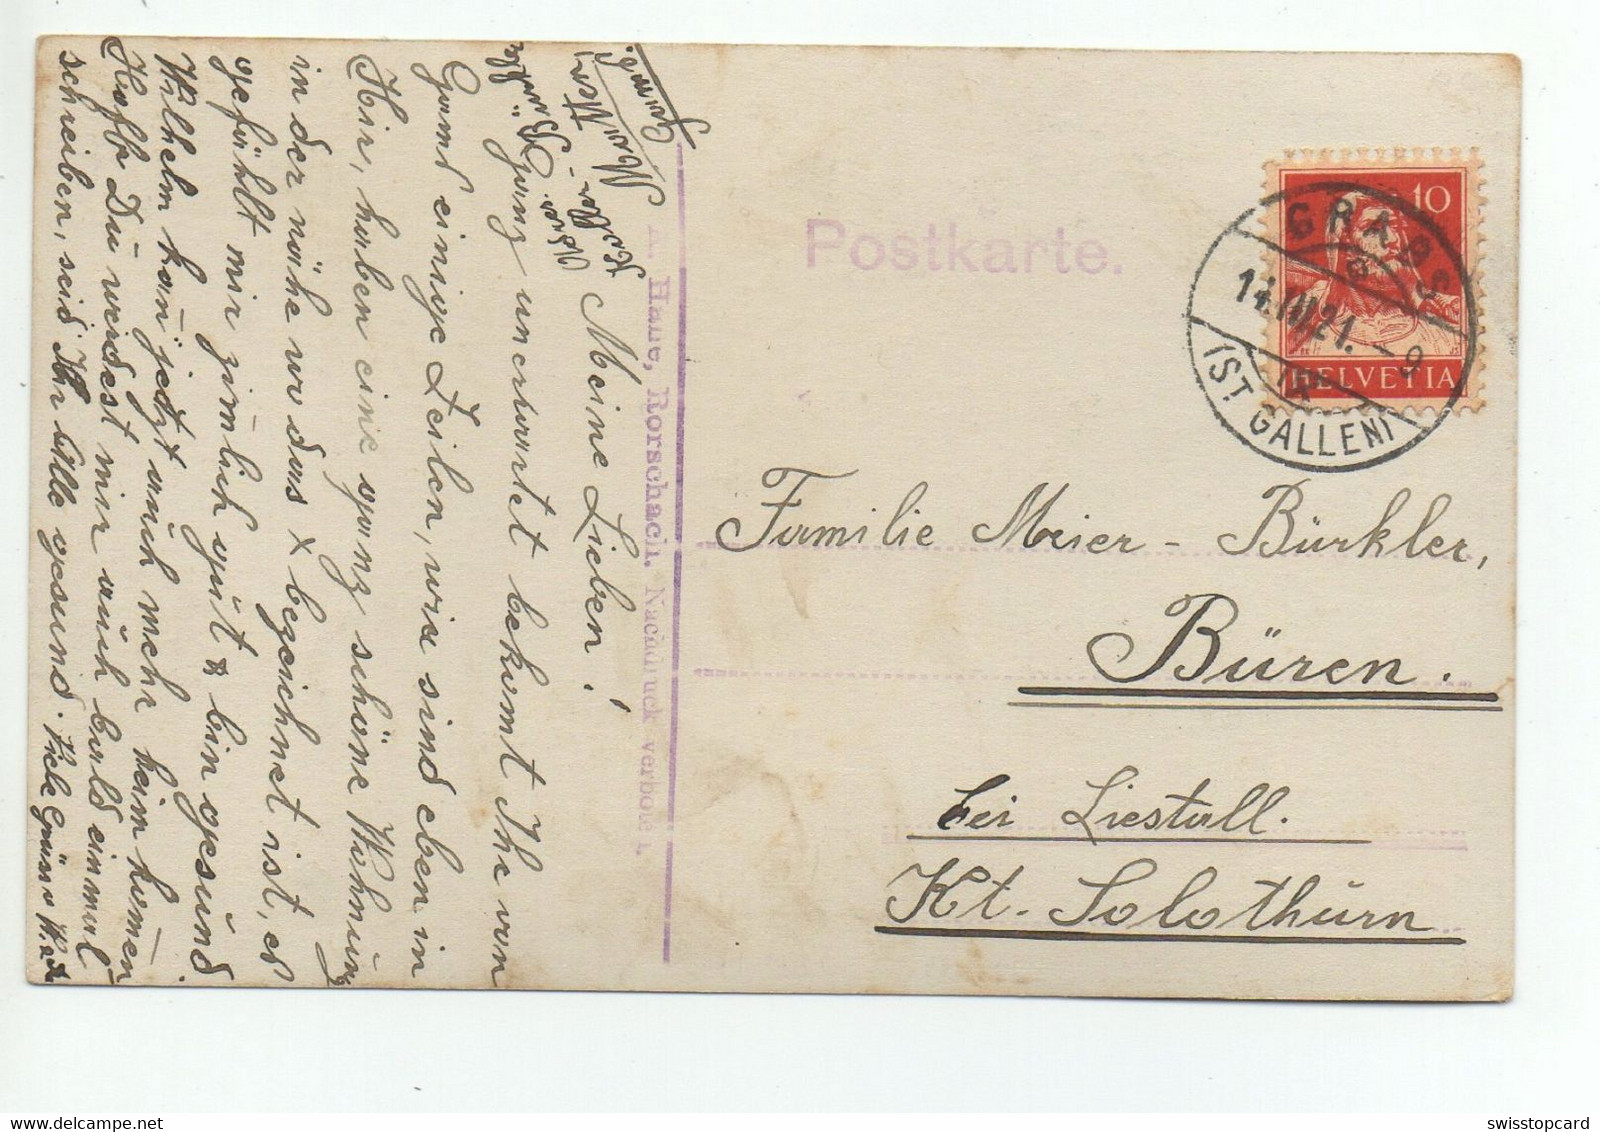 Meine Lieben!
Ganz unerwartet bekomt Ihr von
Gams einige Zeilen, wir sind eben in
Hir, haben eine ganz schöne Wohnung
in der nähe wo das x bezeichnet ist, es
gefühlt mir zimlich gut & bin gesund
Wilhelm kan jetzt auch mehr heim komen
Hoffe Du wirdest mir auch bald einmal
schreiben, seid Ihr alle gesund. Viele Grüsse W. &
A. Hane, Rorschach. Nachdruck verboten.
Postkarte.
10
HELVETIA
GRABS
14.III.21.-9
(ST. GALLEN)
Familie Meier - Bürkler,
Büren.
bei Liestall.
Kt. Solothurn
swisstopcard